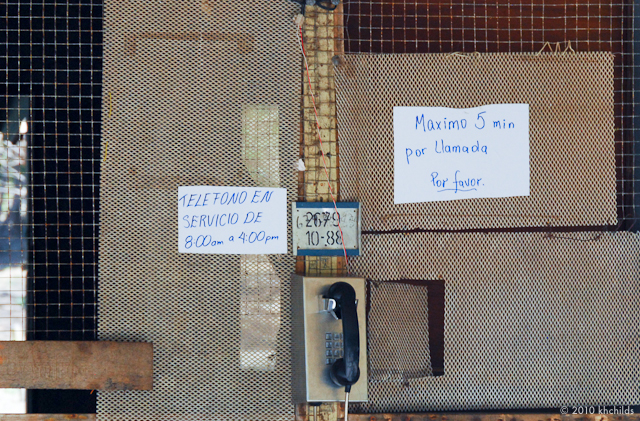 TELEFONO EN
SERVICIO DE
8:00am a 4:00pm
2679
10-88
Maximo 5 min
por llamada
Por favor.
© 2010 khchilds